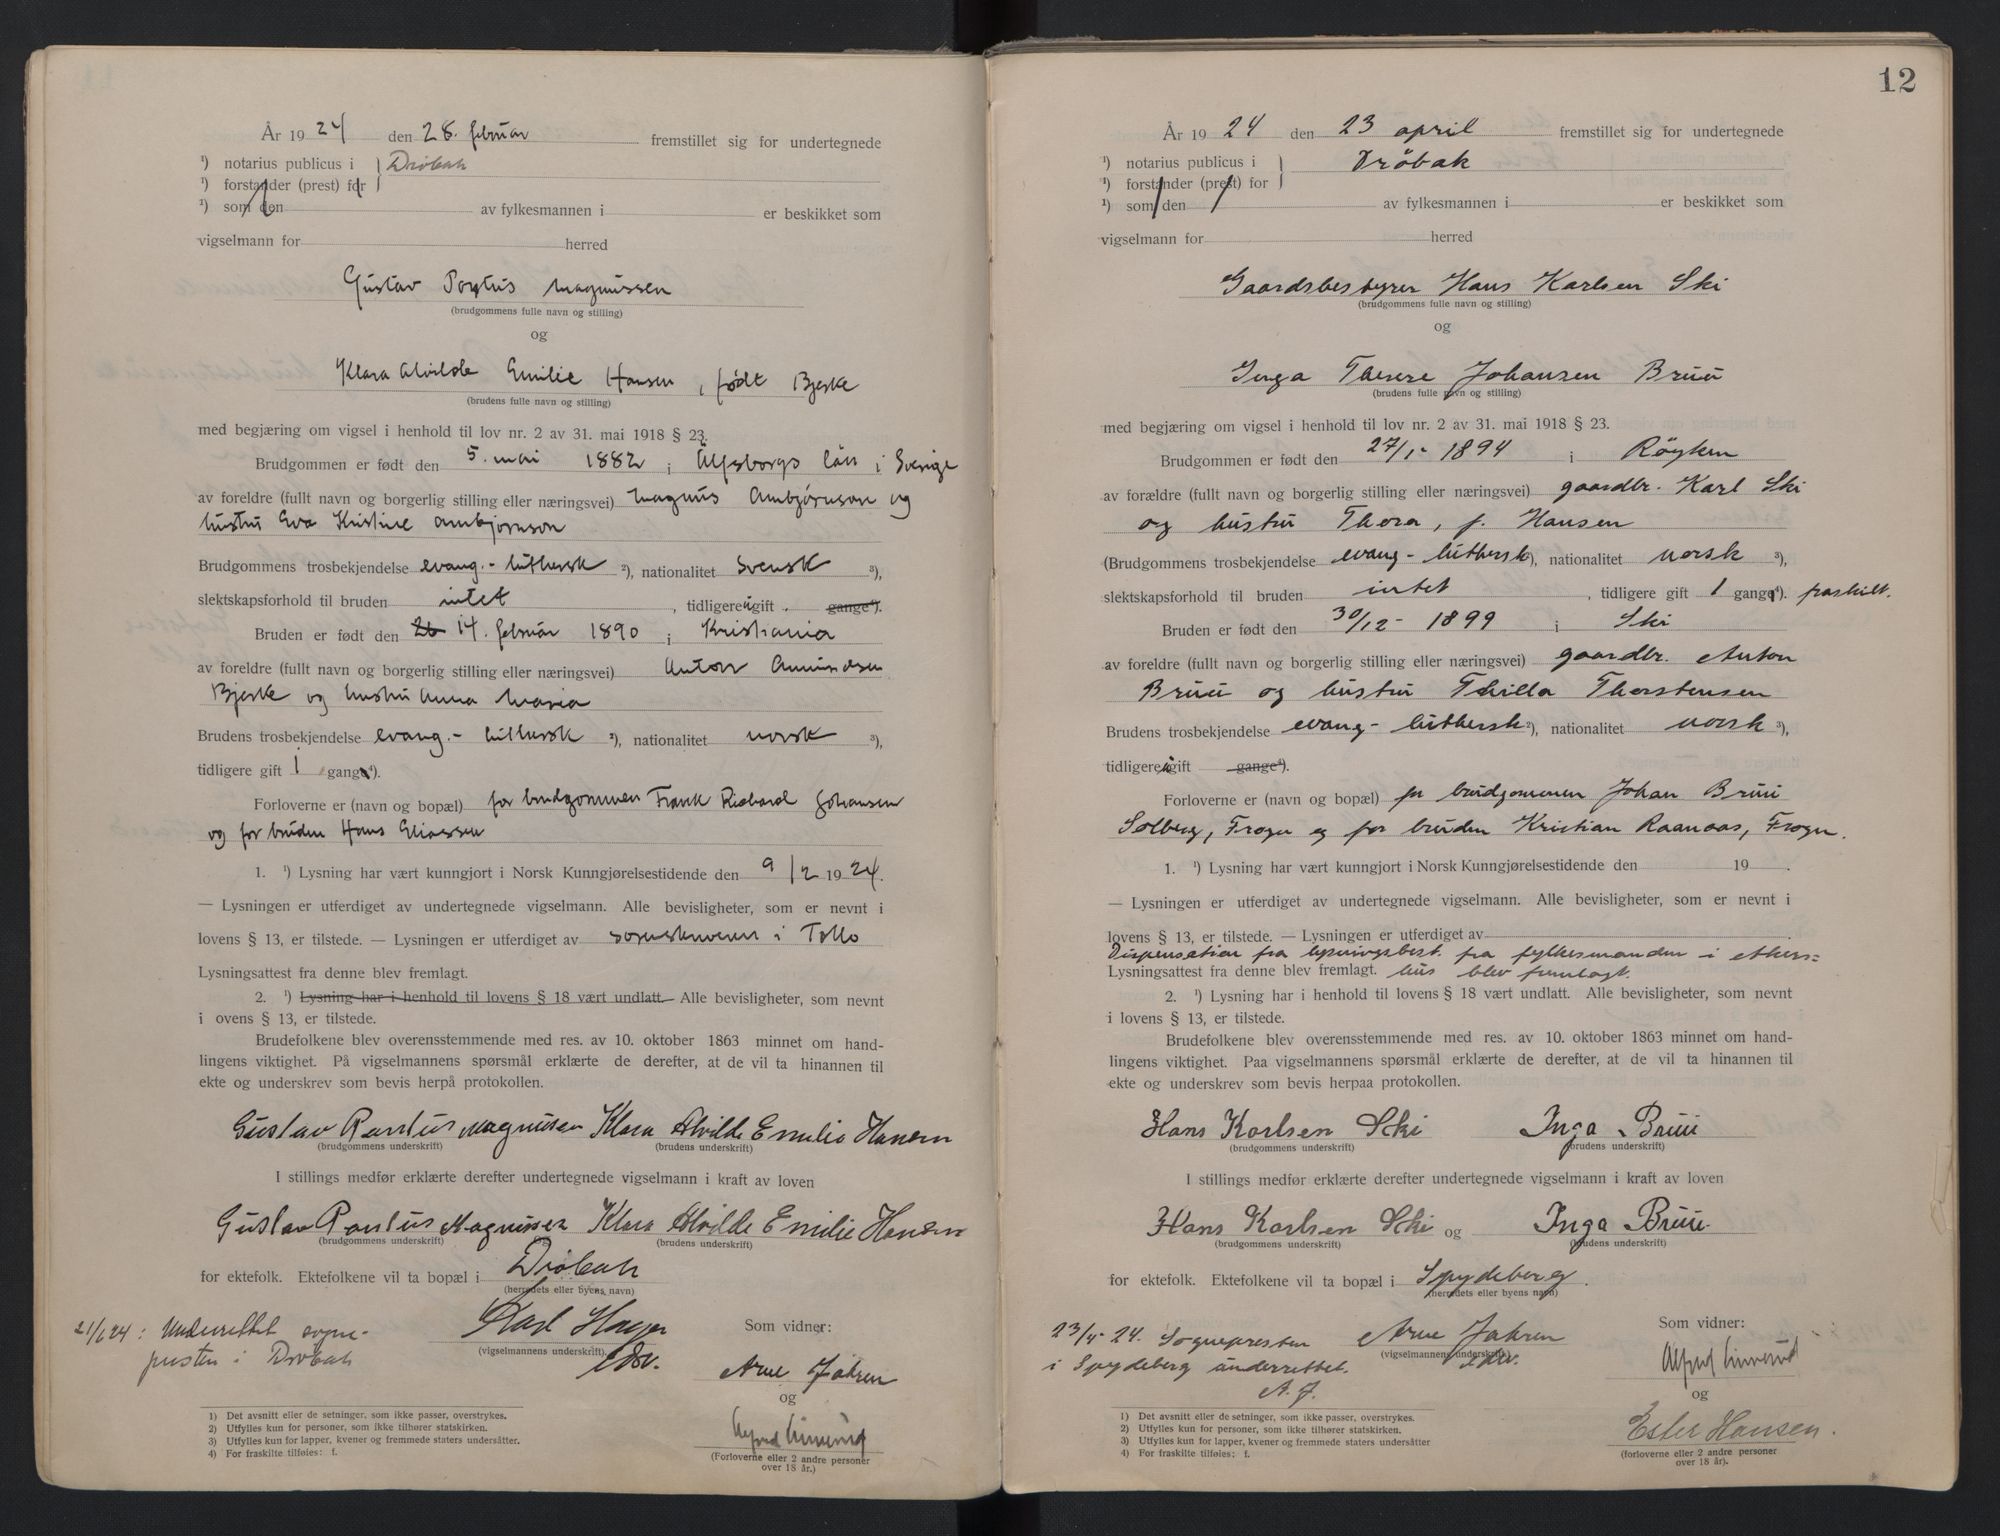 År 1924 den 28. februar fremstillet sig for undertegnede
¹) notarius publicus i } Drøbak
¹) forstander (prest) for
¹) som den av fylkesmannen i er beskikket som
vigselmann for herred
Gustav Pontus Magnussen
(brudgommens fulle navn og stilling)
og
Klara Alvilde Emilie Hansen, født Bjeske
(brudens fulle navn og stilling)
med begjæring om vigsel i henhold til lov nr. 2 av 31. mai 1918 § 23.
Brudgommen er født den 5. mai 1882 i Älfsborgs län i Sverige
av foreldre (fullt navn og borgerlig stilling eller næringsvei) Magnus Ambjørnson og
hustru Eva Kristine Ambjørnson
Brudgommens trosbekjendelse evang.-luthersk ²), nationalitet svensk ³),
slektskapsforhold til bruden intet , tidligere ugift . gange⁴).
Bruden er født den 26 14. februar 1890 i Kristiania
av foreldre (fullt navn og borgerlig stilling eller næringsvei) Anton Amundsen
Bjeske og hustru Anna Maria
Brudens trosbekjendelse evang.-luthersk ²), nationalitet norsk ³),
tidligere gift 1 gang⁴).
Forloverne er (navn og bopæl) for brudgommen Frank Richard Johansen
og for bruden Hans Eliassen
1. ¹) Lysning har vært kunngjort i Norsk Kunngjørelsestidende den 9/2 1924.
— Lysningen er utferdiget av undertegnede vigselmann. Alle bevisligheter, som er nevnt i
lovens § 13, er tilstede. — Lysningen er utferdiget av sorenskriveren i Follo
Lysningsattest fra denne blev fremlagt.
2. ¹) Lysning har i henhold til lovens § 18 vært undlatt. Alle bevisligheter, som nevnt
i ovens § 13, er tilstede.
Brudefolkene blev overensstemmende med res. av 10. oktober 1863 minnet om hand-
lingens viktighet. På vigselmannens spørsmål erklærte de derefter, at de vil ta hinannen til
ekte og underskrev som bevis herpå protokollen.
Gustav Pontus Magnussen Klara Alvilde Emilie Hansen
(brudgommens underskrift) (brudens underskrift)
I stillings medfør erklærte derefter undertegnede vigselmann i kraft av loven
Gustav Pontus Magnussen Klara Alvilde Emilie Hansen
(brudgommens underskrift) (brudens underskrift)
for ektefolk. Ektefolkene vil ta bopæl i Drøbak
(herredets eller byens navn)
21/6 24: Underrettet sogne-
presten i Drøbak
Karl Hager
(vigselmannens underskrift).
Som vidner:
Arne Jahren
og
Alfred Linnerud
(Forloverne eller 2 andre personer
over 18 år.)
1) Det avsnitt eller de setninger, som ikke passer, overstrykes.
2) Utfylles kun for personer, som ikke tilhører statskirken.
3) Utfylles kun for lapper, kvener og fremmede staters undersåtter.
4) For fraskilte tilføies: f.
12
År 1924 den 23 april fremstillet sig for undertegnede
¹) notarius publicus i } Drøbak
¹) forstander (prest) for
¹) som den av fylkesmannen i er beskikket som
vigselmann for herred
Gaardsbestyrer Hans Karlsen Ski
(brudgommens fulle navn og stilling)
og
Inga Therese Johansen Bruu
(brudens fulle navn og stilling)
med begjæring om vigsel i henhold til lov nr. 2 av 31. mai 1918 § 23.
Brudgommen er født den 27/1- 1894 i Røyken
av forældre (fullt navn og borgerlig stilling eller næringsvei) gaardbr. Karl Ski
og hustru Thora, f. Hansen
(Brudgommens trosbekjendelse evang-luthersk ²), nationalitet norsk ³),
slektskapsforhold til bruden intet , tidligere gift 1 gang⁴). fraskilt.
Bruden er født den 30/12- 1899 i Ski
av foreldre (fullt navn og borgerlig stilling eller næringsvei) gaardbr. Anton
Bruu og hustru Thilla Thorstensen
Brudens trosbekjendelse evang-luthersk ²), nationalitet norsk ³),
tidligere ugift gange⁴).
Forloverne er (navn og bopæl) for brudgommen Johan Bruu
Solberg, Frogn og for bruden Kristian Raanaas, Frogn.
1. ¹) Lysning har vært kunngjort i Norsk Kunngjørelsestidende den 19 .
— Lysningen er utferdiget av undertegnede vigselmann. Alle bevisligheter, som er nevnt i
lovens § 13, er tilstede. — Lysningen er utferdiget av
Dispensation fra lysningsbest. fra fylkesmanden i Akers=
Lysningsattest fra denne blev fremlagt. hus blev fremlagt.
2. ¹) Lysning har i henhold til lovens § 18 vært undlatt. Alle bevisligheter, som nevnt
i lovens § 13, er tilstede.
Brudefolkene blev overensstemmende med res. av 10. oktober 1863 minnet om hand-
lingens viktighet. Paa vigselmannens spørsmål erklærte de derefter, at de vil ta hinannen til
ekte og underskrev som bevis herpaa protokollen.
Hans Karlsen Ski Inga Bruu
(brudgommens underskrift) (brudens underskrift)
I stillings medfør erklærte derefter undertegnede vigselmann i kraft av loven
Hans Karlsen Ski og Inga Bruu
(brudgommens underskrift) (brudens underskrift)
for ektefolk. Ektefolkene vil ta bopæl i Spydeberg.
(herredets eller byens navn)
23/4- 24. Sognepresten
i Spydeberg underrettet.
A. J.
Arne Jahren
(vigselmannens underskrift)
Som vidner:
Alfred Linnerud
og
Ester Hansen.
(forloverne eller 2 andre personer
over 18 år).
1) Det avsnitt eller de setninger, som ikke passer, overstrykes.
2) Utfylles kun for personer, som ikke tilhører statskirken.
3) Utfylles kun for lapper, kvener og fremmede staters undersåtter
4) For fraskilte tilføies: f.